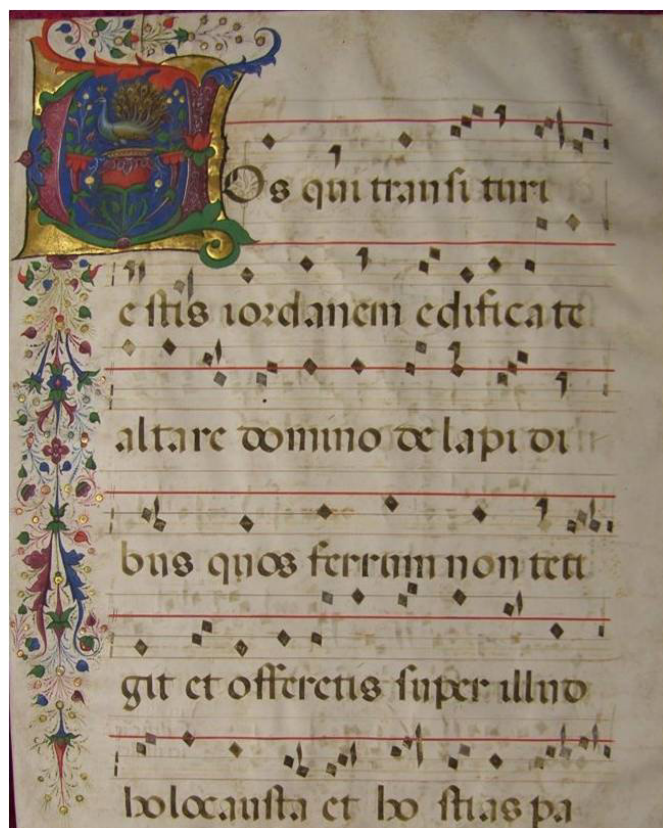 VOs qui transi turi
e stis iordanem edificate
altare domino de lapi di
bus quos ferrum non teti
git et offeretis super illud
holocausta et ho stias pa